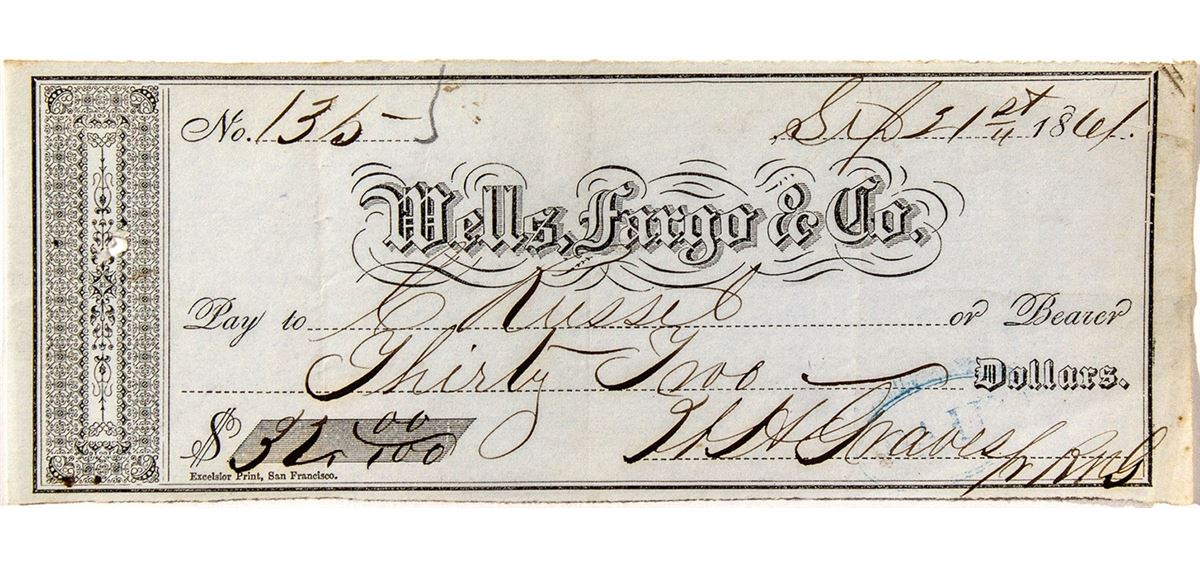 No. 135- Sep 21st 1861.
Wells, Fargo & Co.
Pay to C Russel or Bearer
Thirty Two Dollars.
$ 32, 00/100 W H Graves
Excelsior Print, San Francisco.